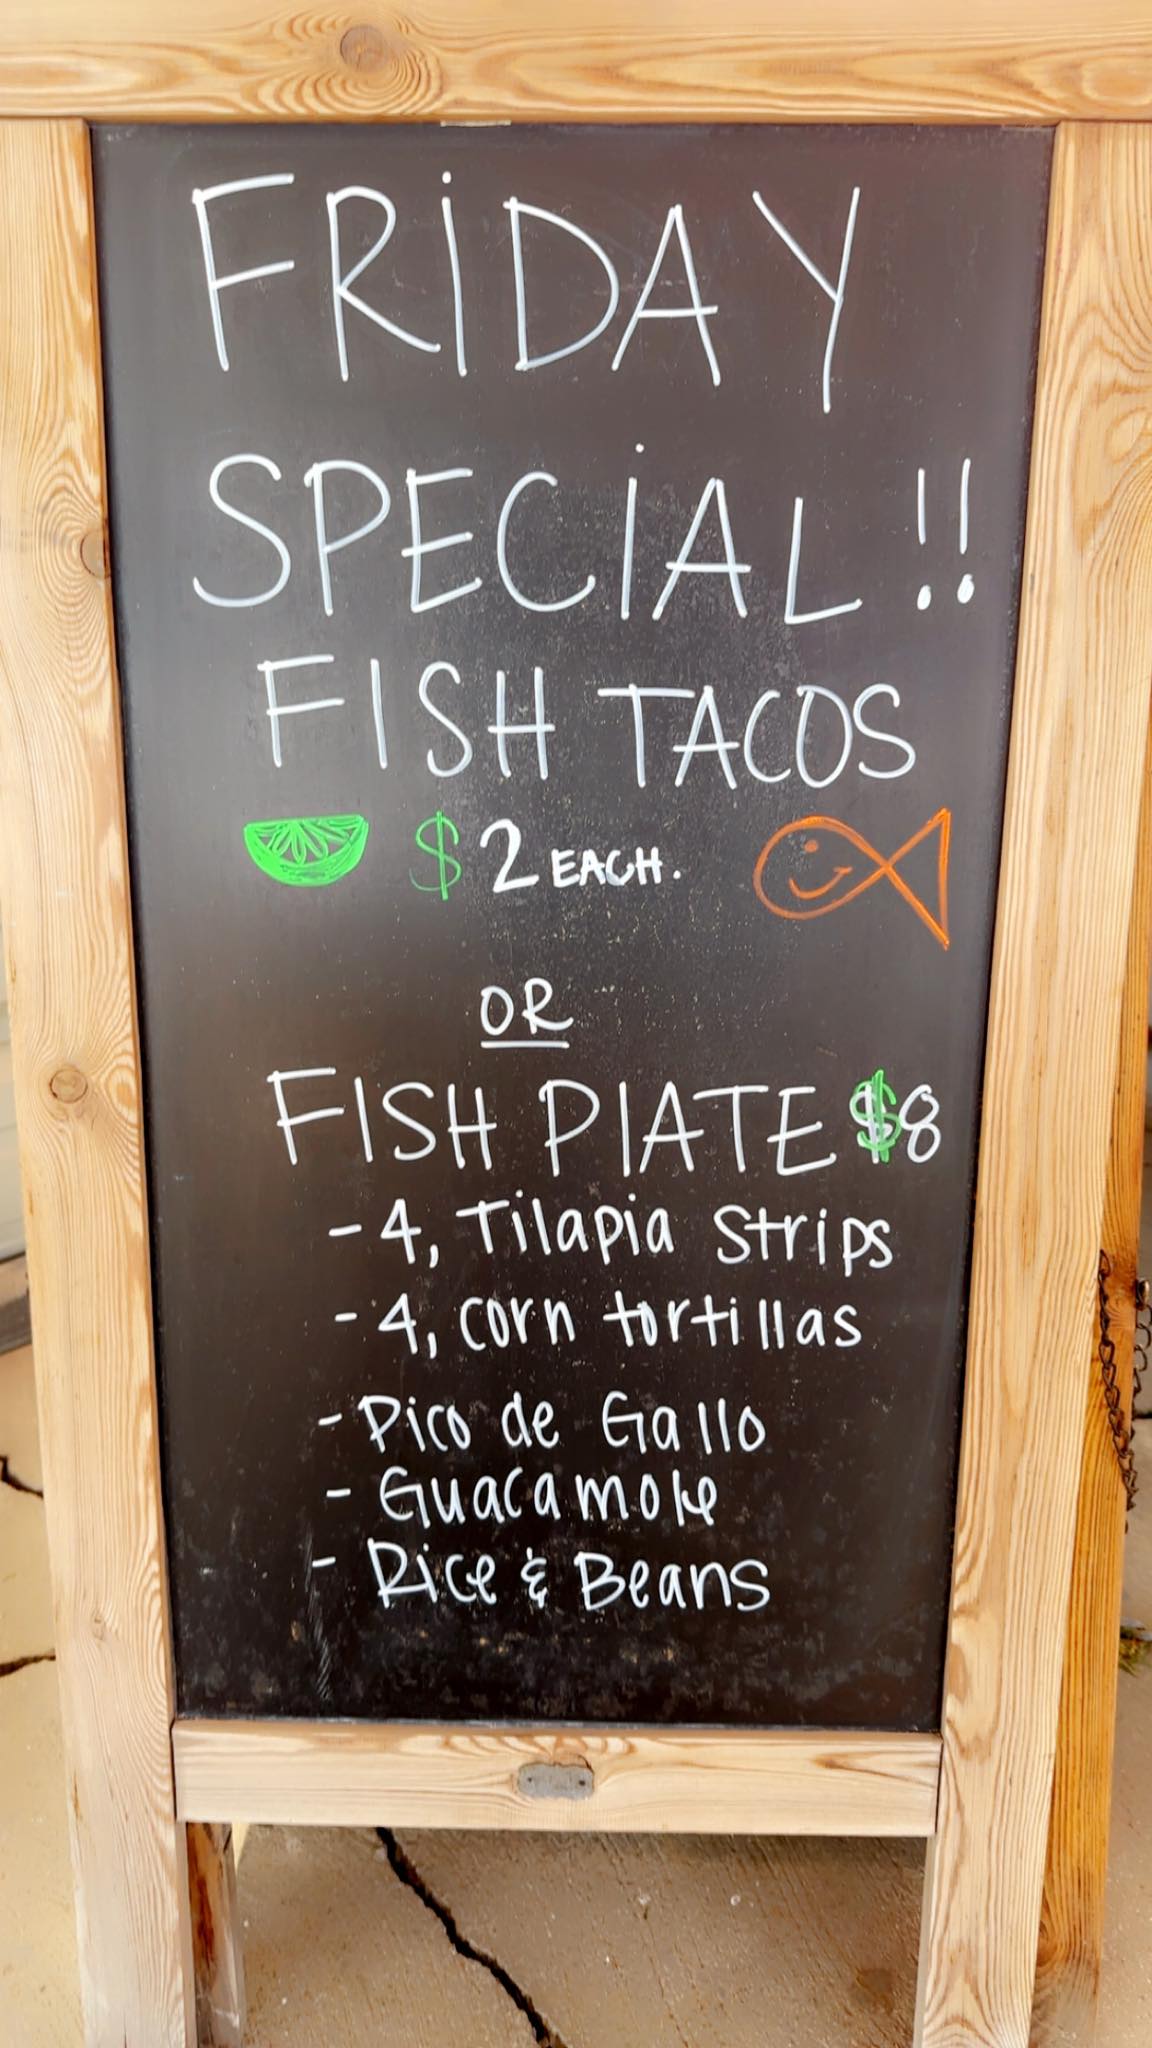 FRiDAY
SPECiAL!!
FISH TACOS
$2 EACH.
OR
FISH PLATE $8
- 4, Tilapia Strips
- 4, corn tortillas
- Pico de Gallo
- Guacamole
- Rice & Beans